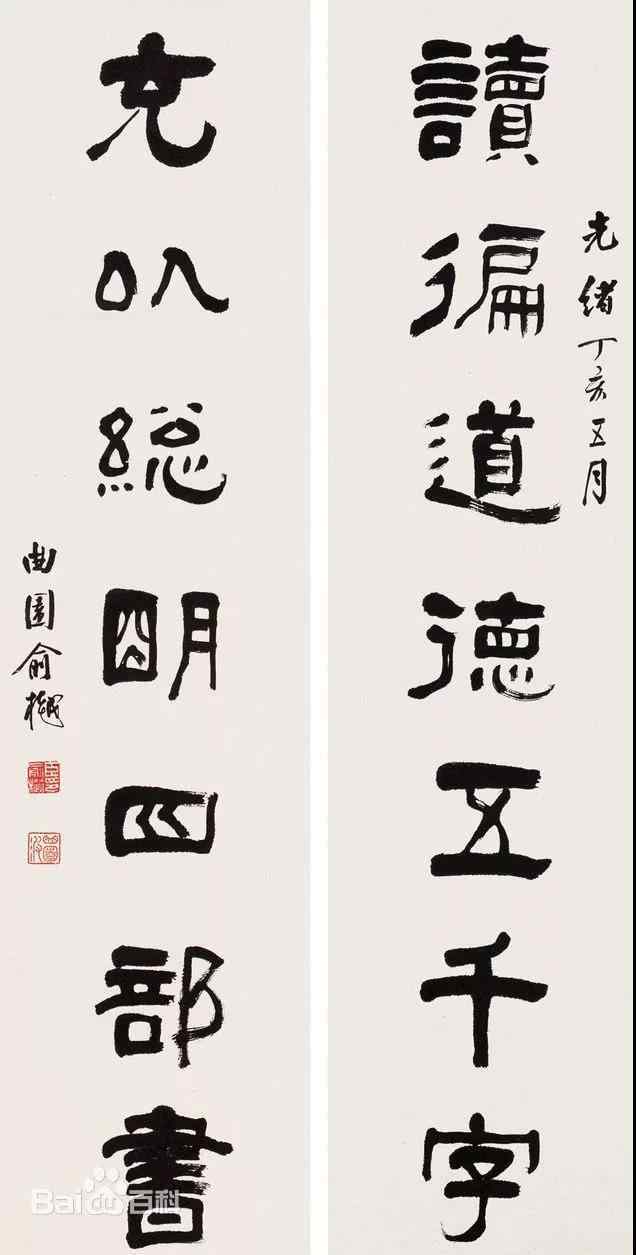 光緒丁亥五月
讀徧道德五千字
充以総朙四部書
曲園俞樾
Baidu百科